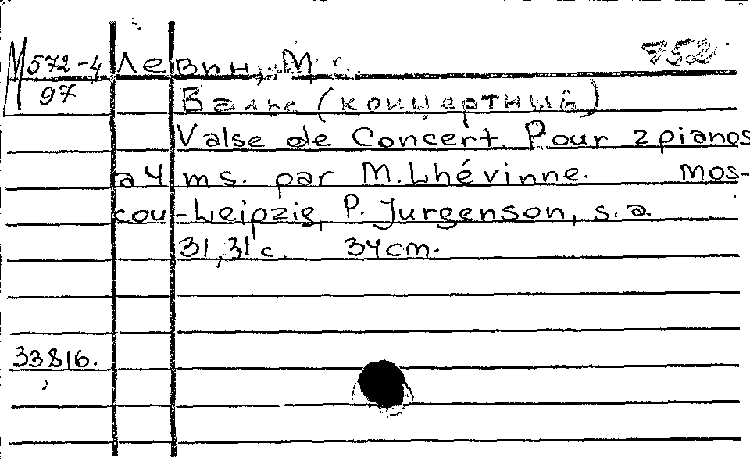 М 572-4 Левин, М. 752
97 Вальс (концертный)
Valse de Concert. Pour 2 pianos
a 4 ms. par M. Lhévinne. Mos-
cou-Leipzig, P. Jurgenson, s.a.
31,31 c. 34 cm.
33816.